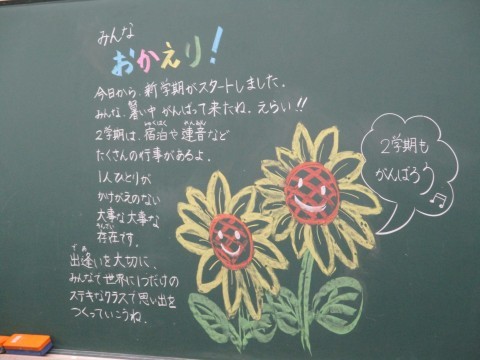 みんな
おかえり!
今日から、新学期がスタートしました。
みんな、暑い中 がんばって来たね。えらい!!
2学期は、宿泊や連音など
たくさんの行事があるよ。
1人ひとりが
かけがえのない
大事な大事な
存在です。
出逢いを大切に、
みんなで世界に1つだけの
ステキなクラスで思い出を
つくっていこうね。
2学期も
がんばろう♫